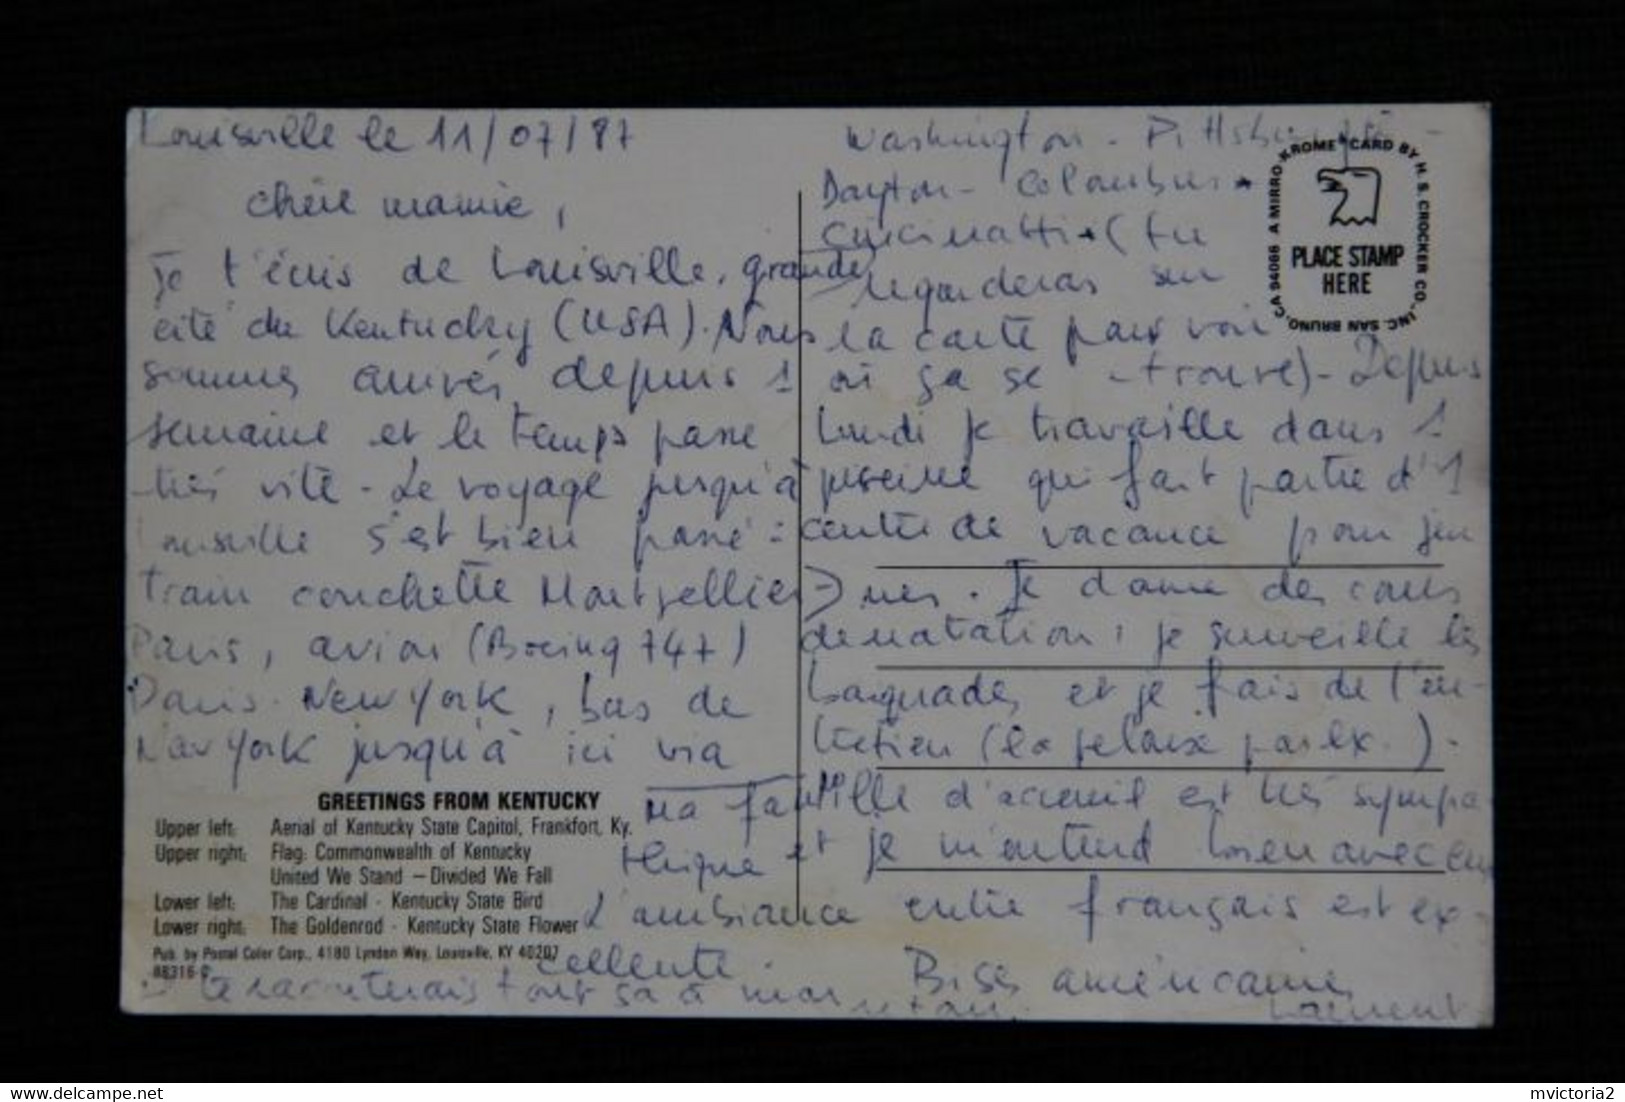 Louisville le 11/07/87
chère mamie,
Je t'écris de Louisville, grande
cité du Kentucky (USA). Nous
sommes arrivés depuis 1
semaine et le temps passe
très vite - Le voyage jusqu'à
Louisville s'est bien passé :
train couchette Montpellier
Paris, avion (Boeing 747)
Paris - New York, bus de
New York jusqu'à ici via
Washington - Pittsburgh -
Dayton - Columbus -
Cincinatti - (tu
regarderas sur
la carte pour voir
où ça se trouve) - Depuis
Lundi je travaille dans 1
piscine qui fait partie d'1
centre de vacance pour jeu
nes. Je donne des cours
de natation, je surveille les
baignades et je fais de l'en-
tretien (la pelouse par ex.) -
Ma famille d'acceuil est très sympa-
thique et je m'entend bien avec eux
L'ambiance entre français est ex-
cellente.
Bises américaines
Laurent
te raconterais tout ça à mon retour.
GREETINGS FROM KENTUCKY
Upper left: Aerial of Kentucky State Capitol, Frankfort, Ky.
Upper right: Flag: Commonwealth of Kentucky
United We Stand — Divided We Fall
Lower left: The Cardinal - Kentucky State Bird
Lower right: The Goldenrod - Kentucky State Flower
Pub. by Postal Color Corp., 4180 Lynden Way, Louisville, KY 40207
A MIRRO-KROME CARD BY H. S. CROCKER CO., INC. SAN BRUNO, CA 94066
PLACE STAMP
HERE
delcampe.net
mvictoria2